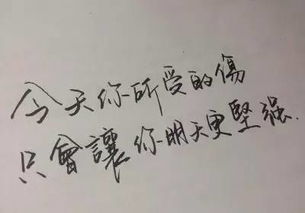 今天你所受的傷
只會讓你明天更堅强.